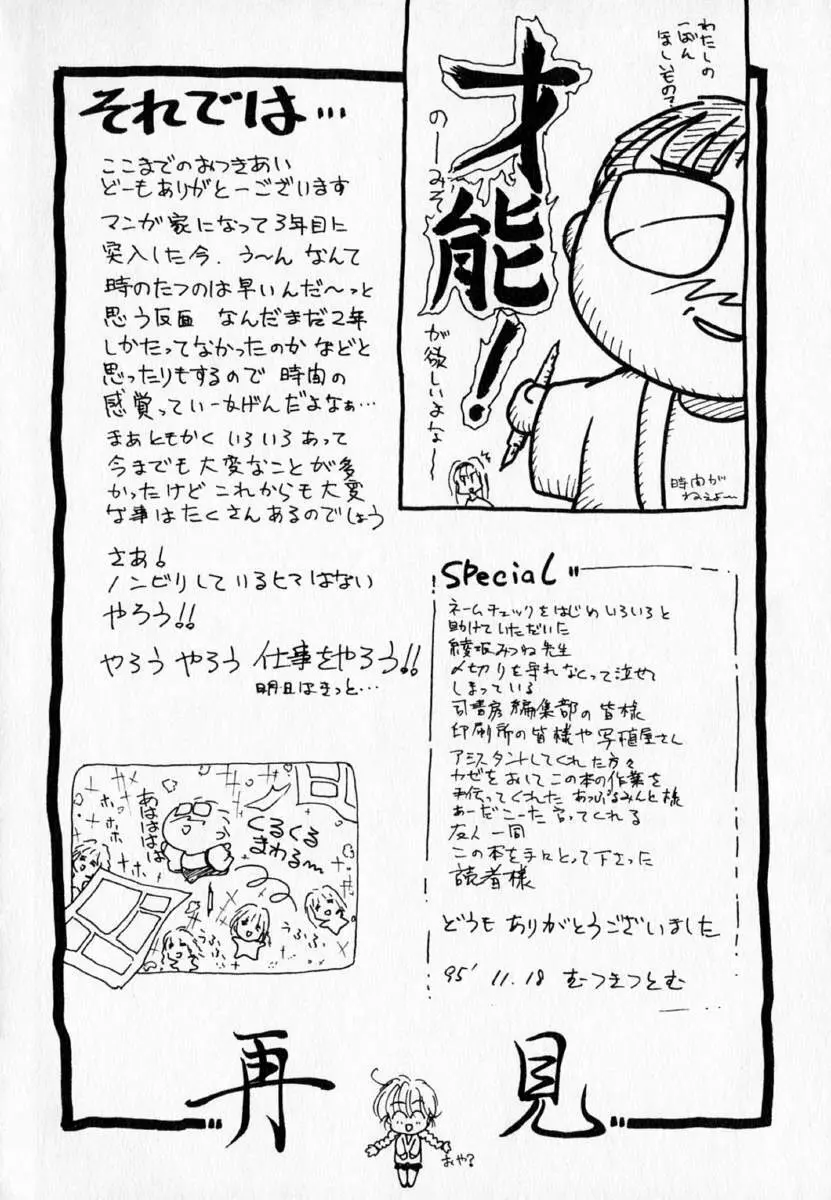 わたしの
一ばん
ほしいもの?
才能!
のーみそ
が欲しいよな〜
時間が
ねぇよ〜
それでは…
ここまでのおつきあい
どーもありがとーございます
マンガ家になって3年目に
突入した今、う〜ん なんて
時のたつのは早いんだ〜っと
思う反面 なんだまだ2年
しかたってなかったのか などと
思ったりもするので 時間の
感覚っていー加減だよなぁ…
まぁともかく いろいろあって
今までも大変なことが多
かったけど これからも大変
な事はたくさんあるのでしょう
さあ!
ノンビリしているヒマはない
やろう!!
やろう やろう 仕事をやろう!!
明日はきっと…
Special
ネームチェックをはじめ いろいろと
助けていただいた
綾坂みつね先生
〆切りを守れなくって泣かせて
しまっている
司書房編集部の皆様
印刷所の皆様や写植屋さん
アシスタントしてくれた方々
カゼをおして この本の作業を
手伝ってくれた あっぷるみんと様
あーだこーだ言ってくれる
友人一同
この本を手にとって下さった
読者様
どうもありがとうございました
95' 11.18 むつきつとむ
あはははは
ホホホ
ホホホ
くるくる
まわる〜
うふふ
再見
おや?